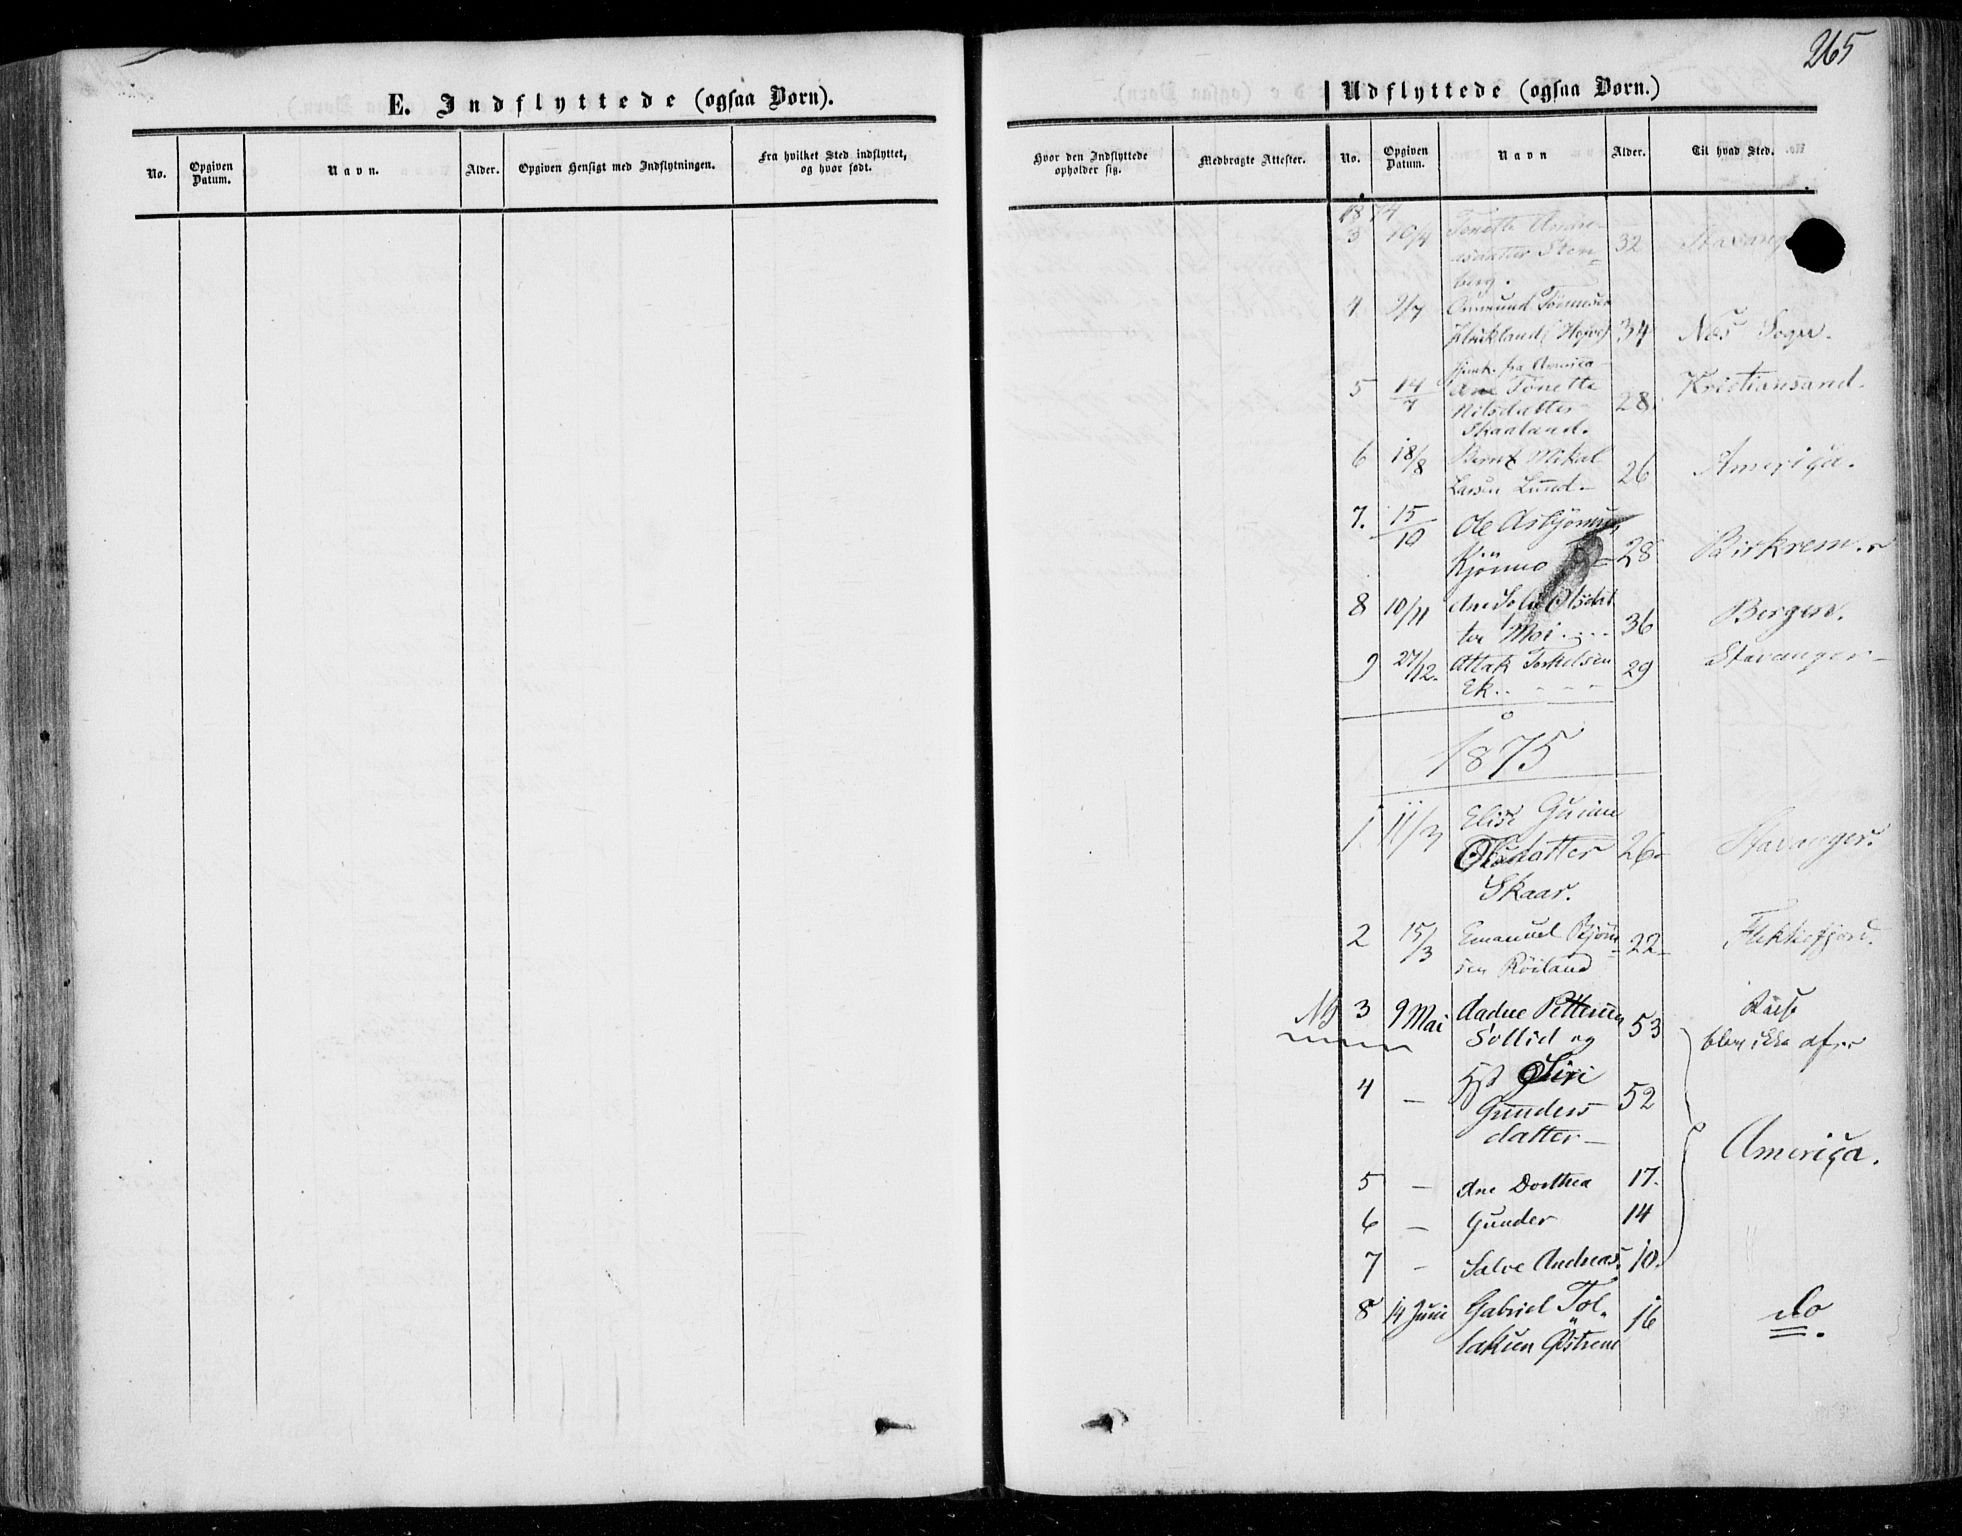 265
E. Indflyttede (ogsaa Børn).
Udflyttede (ogsaa Børn.)
No. Opgiven Datum. Navn. Alder. Opgiven Hensigt med Indflytningen. Fra hvilket Sted indflyttet, og hvor født.
Hvor den Indflyttede opholder sig. Medbragte Attester. No. Opgiven Datum. Navn Alder. Til hvad Sted.
1874
3 10/4 Tonette Andre-
asdatter Sten- 32
berg.
4 9/7
34 Næs Sogn.
fra America
5 14/7 Ane Tonette Kristiansand.
Nilsdatter 28
Skaaland.
6 18/8 Bernt Mikal Ameriça.
Larsen Lund - 26
7. 15/10 Ole Asbjörnsen
28 Birkrem.
8 10/11 Ane Olsdat
ter Moi 36 Bergen.
9 27/12. Attak Torkelsen 29 Stavanger -
Ek..
1875
1. 11/3 Elise
datter 26 Stavanger.
Skaar.
2 15/3 Emanuel Bjørn- 22 Flekkefjord.
sen Röiland
NB 3 9 Mai Aadne Pettersen 53 Reise
Sollid og blev ikke af..
4 - Siri
Gunders 52
datter - Ameriça.
5 - Ane Dorthea 17.
6 - Gunder 14
7 - Salve Andreas. 10.
8 14 Juni Gabriel Tol- 16 do.
laksen Østrem